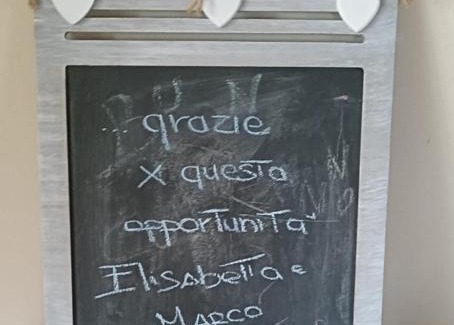 ... grazie
x questa
opportunità
Elisabetta e
MARCO